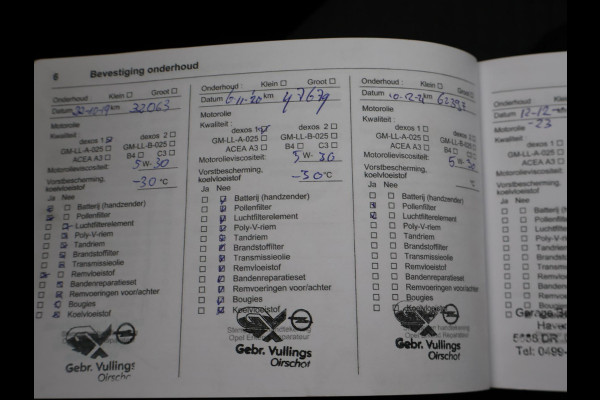 6 Bevestiging onderhoud
Onderhoud Klein ☐ Groot ☐
Datum km 32063
Motorolie
Kwaliteit :
dexos 1 dexos 2 ☐
GM-LL-A-025 ☐ GM-LL-B-025 ☐
ACEA A3 ☐ B4 ☐ C3 ☐
Motorolieviscositeit: 5 W- 30
Vorstbescherming,
koelvloeistof -30 °C
Ja Nee
Batterij (handzender)
Pollenfilter
Luchtfilterelement
Poly-V-riem
Tandriem
Brandstoffilter
Transmissieolie
Remvloeistof
Bandenreparatieset
Remvoeringen voor/achter
Bougies
Koelvloeistof
Gebr. Vullings
Oirschot
Onderhoud : Klein ☐ Groot ☐
Datum 6 11-'20 km 47679
Motorolie
Kwaliteit :
dexos 1 dexos 2 ☐
GM-LL-A-025 ☐ GM-LL-B-025 ☐
ACEA A3 ☐ B4 ☐ C3 ☐
Motorolieviscositeit: 5 W- 30
Vorstbescherming,
koelvloeistof -30 °C
Ja Nee
Batterij (handzender)
Pollenfilter
Luchtfilterelement
Poly-V-riem
Tandriem
Brandstoffilter
Transmissieolie
Remvloeistof
Bandenreparatieset
Remvoeringen voor/achter
Bougies
Koelvloeistof
Gebr. Vullings
Oirschot
Onderhoud : Klein ☐ Groot ☐
Datum km
Motorolie
Kwaliteit :
dexos 1 ☐ dexos 2 ☐
GM-LL-A-025 ☐ GM-LL-B-025 ☐
ACEA A3 ☐ B4 ☐ C3 ☐
Motorolieviscositeit: 5 W- 30
Vorstbescherming,
koelvloeistof °C
Ja Nee
Batterij (handzender)
Pollenfilter
Luchtfilterelement
Poly-V-riem
Tandriem
Brandstoffilter
Transmissieolie
Remvloeistof
Bandenreparatieset
Remvoeringen voor/achter
Bougies
Koelvloeistof
Gebr. Vullings
Oirschot
Onderhoud :
Datum 12-12 -23
Motorolie
Kwaliteit :
dexos 1
GM-LL-A-025
ACEA A3
Motorolieviscositeit
Vorstbescherming,
koelvloeistof
Ja Nee
Garage
Tel: 0499-